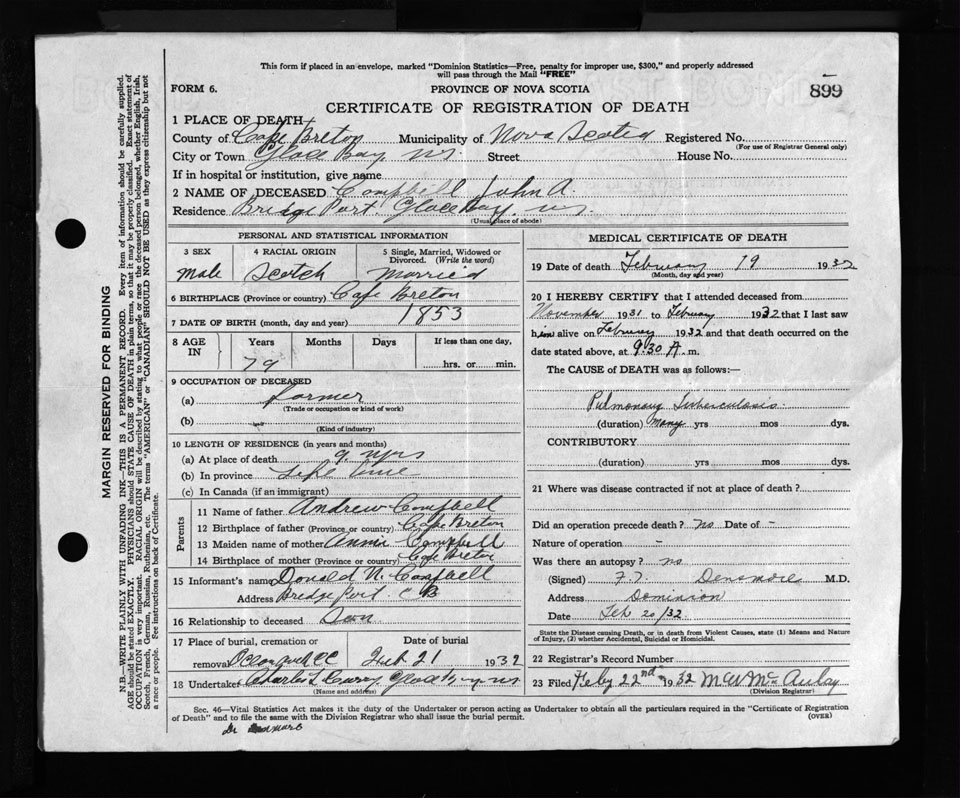 This form if placed in an envelope, marked "Dominion Statistics—Free, penalty for improper use, $300," and properly addressed
will pass through the Mail "FREE"
FORM 6.
PROVINCE OF NOVA SCOTIA
899
CERTIFICATE OF REGISTRATION OF DEATH
1 PLACE OF DEATH
County of Cape Breton Municipality of Nova Scotia Registered No.
(For use of Registrar General only)
City or Town Glace Bay, N.S. Street House No.
If in hospital or institution, give name
2 NAME OF DECEASED Campbell John A.
Residence Bridge Port. Glace Bay. N.S.
(Usual place of abode)
MARGIN RESERVED FOR BINDING
N.B.—WRITE PLAINLY WITH UNFADING INK—THIS IS A PERMANENT RECORD. Every item of information should be carefully supplied.
AGE should be stated EXACTLY. PHYSICIANS should STATE CAUSE OF DEATH in plain terms, so that it may be properly classified. Exact statement of
OCCUPATION is very important. RACIAL ORIGIN will be described by stating to what people or race the deceased person belonged, whether English, Irish,
Scotch, French, German, Russian, Ruthenian, etc. The terms "AMERICAN" or "CANADIAN" SHOULD NOT BE USED as they express citizenship but not
a race or people. See instructions on back of Certificate.
PERSONAL AND STATISTICAL INFORMATION
3 SEX
4 RACIAL ORIGIN
5 Single, Married, Widowed or
Divorced. (Write the word)
Male Scotch Married
6 BIRTHPLACE (Province or country) Cape Breton
7 DATE OF BIRTH (month, day and year) 1853
8 AGE
IN
Years Months Days If less than one day,
79 hrs. or min.
9 OCCUPATION OF DECEASED
(a) Farmer
(Trade or occupation or kind of work)
(b)
(Kind of industry)
10 LENGTH OF RESIDENCE (in years and months)
(a) At place of death 9 yrs
(b) In province Life time
(c) In Canada (if an immigrant)
Parents
11 Name of father Andrew Campbell
12 Birthplace of father (Province or country) Cape Breton
13 Maiden name of mother Annie Campbell
14 Birthplace of mother (Province or country) Cape Breton
15 Informant's name Donald N. Campbell
Address Bridge Port C B
16 Relationship to deceased Son
17 Place of burial, cremation or Date of burial
removal Feb 21 1932
18 Undertaker Charles L. Curry, Glace Bay N.S.
(Name and address)
MEDICAL CERTIFICATE OF DEATH
19 Date of death February 19 1932
(Month, day and year)
20 I HEREBY CERTIFY that I attended deceased from
November 1931 to February 1932 that I last saw
him alive on February 1932 and that death occurred on the
date stated above, at 9.30 A. m.
The CAUSE of DEATH was as follows:—
Pulmonary Tuberculosis
(duration) many yrs mos dys.
CONTRIBUTORY
(duration) yrs mos dys.
21 Where was disease contracted if not at place of death?
Did an operation precede death? no Date of -
Nature of operation -
Was there an autopsy? no
(Signed) F.T. Densmore M.D.
Address Dominion
Date Feb 20/32
State the Disease causing Death, or in death from Violent Causes, state (1) Means and Nature
of Injury, (2) whether Accidental, Suicidal or Homicidal.
22 Registrar's Record Number
23 Filed Feby 22nd 1932 M W McAulay
(Division Registrar)
Sec. 46—Vital Statistics Act makes it the duty of the Undertaker or person acting as Undertaker to obtain all the particulars required in the "Certificate of Registration
of Death" and to file the same with the Division Registrar who shall issue the burial permit.
(OVER)
Dr